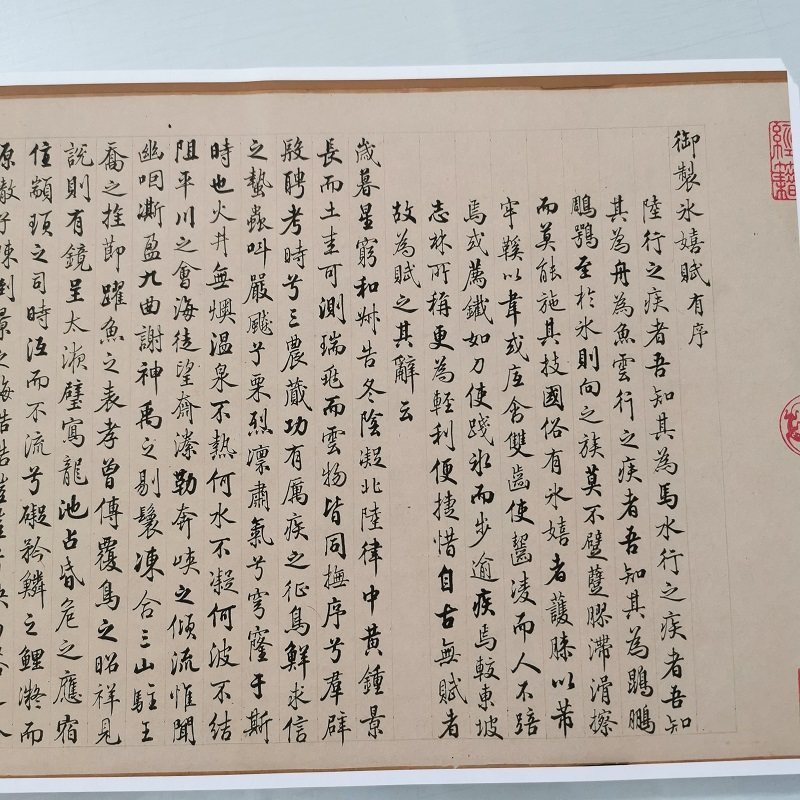 御製冰嬉賦有序
陸行之疾者吾知其為馬水行之疾者吾知
其為舟為魚雲行之疾者吾知其為鵾鵬
鵰鶚至於冰則向之族莫不躄躠膠滯滑擦
而莫能施其技國俗有冰嬉者護膝以芾
牢鞵以韋或底含雙齒使齧凌而人不踣
焉或薦鐵如刀使踐冰而步逾疾焉較東坡
志林所稱更為輕利便捷惜自古無賦者
故為賦之其辭云
歲暮星窮和艸告冬陰凝北陸律中黃鍾景
長而土圭可測瑞飛而雲物皆同撫序兮羣辟
殷聘考時兮三農蕆功有厲疾之征鳥鮮求信
之蟄蟲叫嚴飈兮栗烈凛肅氣兮穹窿于斯
時也火井無燠溫泉不熱何水不凝何波不結
阻平川之會海徒望齊瀠勒奔峽之傾流惟聞
幽咽澌盈九曲謝神禹之剔鬟凍合三山駐王
喬之拄節躍魚之表孝曾傳覆鳥之昭祥見
說則有鏡呈太液璧寫龍池占昏危之應宿
住顓頊之司時沍而不流兮礙矜鱗之鯉凝而